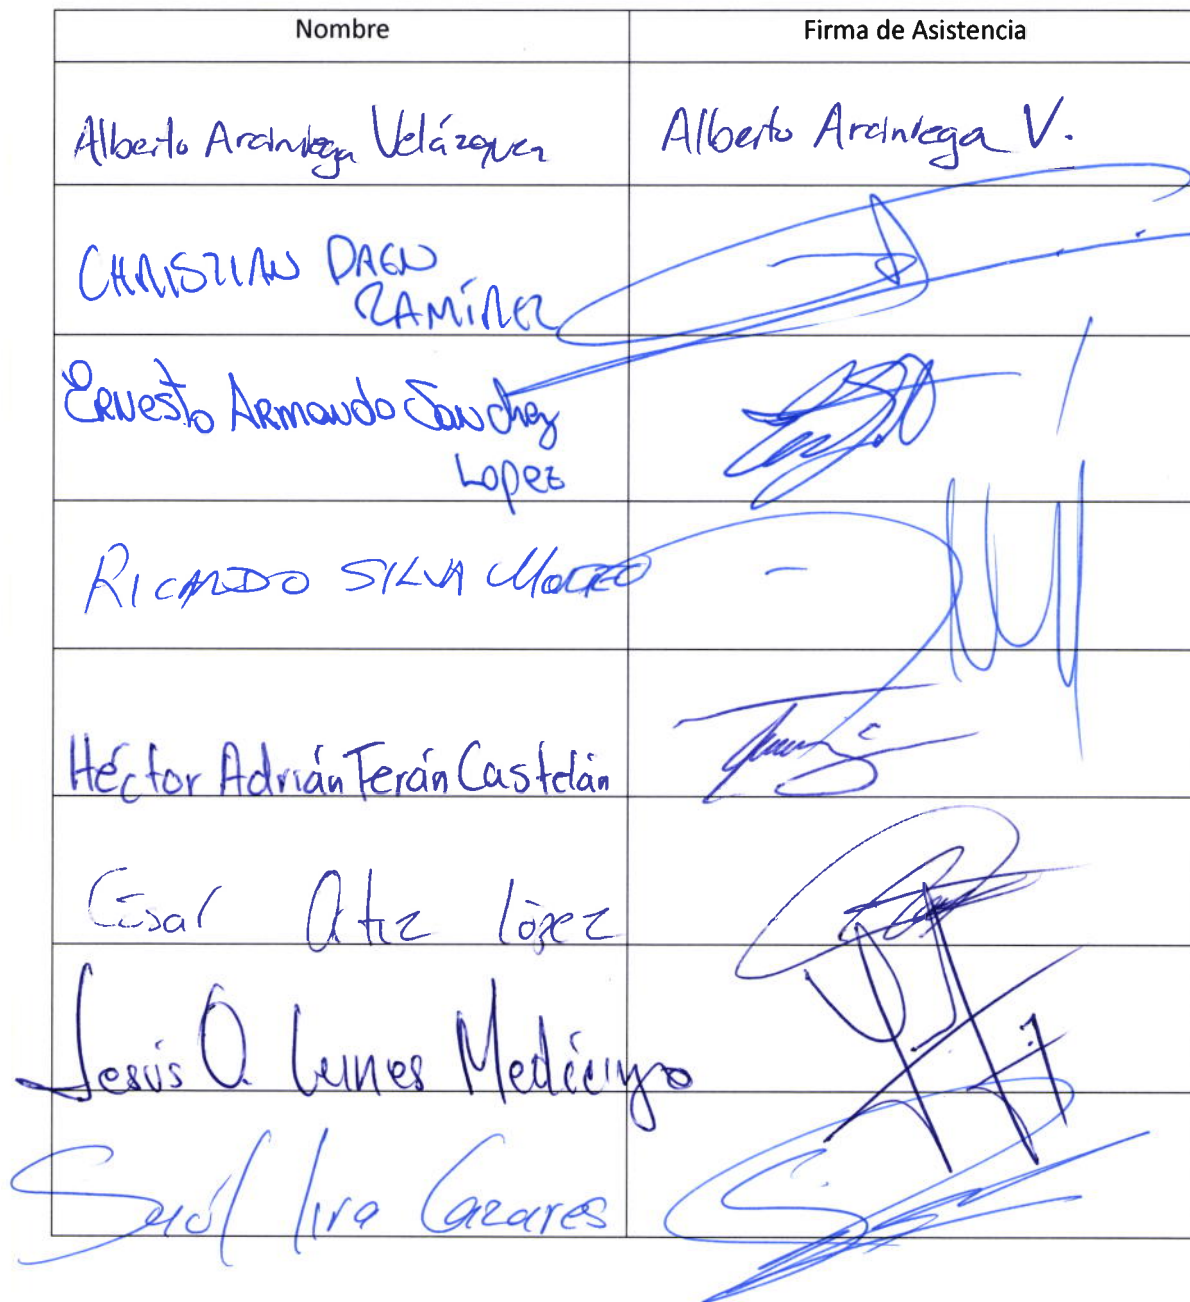 Nombre Firma de Asistencia
Alberto Arciniega Velázquez Alberto Arciniega V.
CHRISTIAN DAEN
RAMÍREZ
Ernesto Armando Sanchez
Lopez
RICARDO SILVA
Héctor Adrián Terán Castelán
César López
Jesús O.
Saúl Lira Cazares